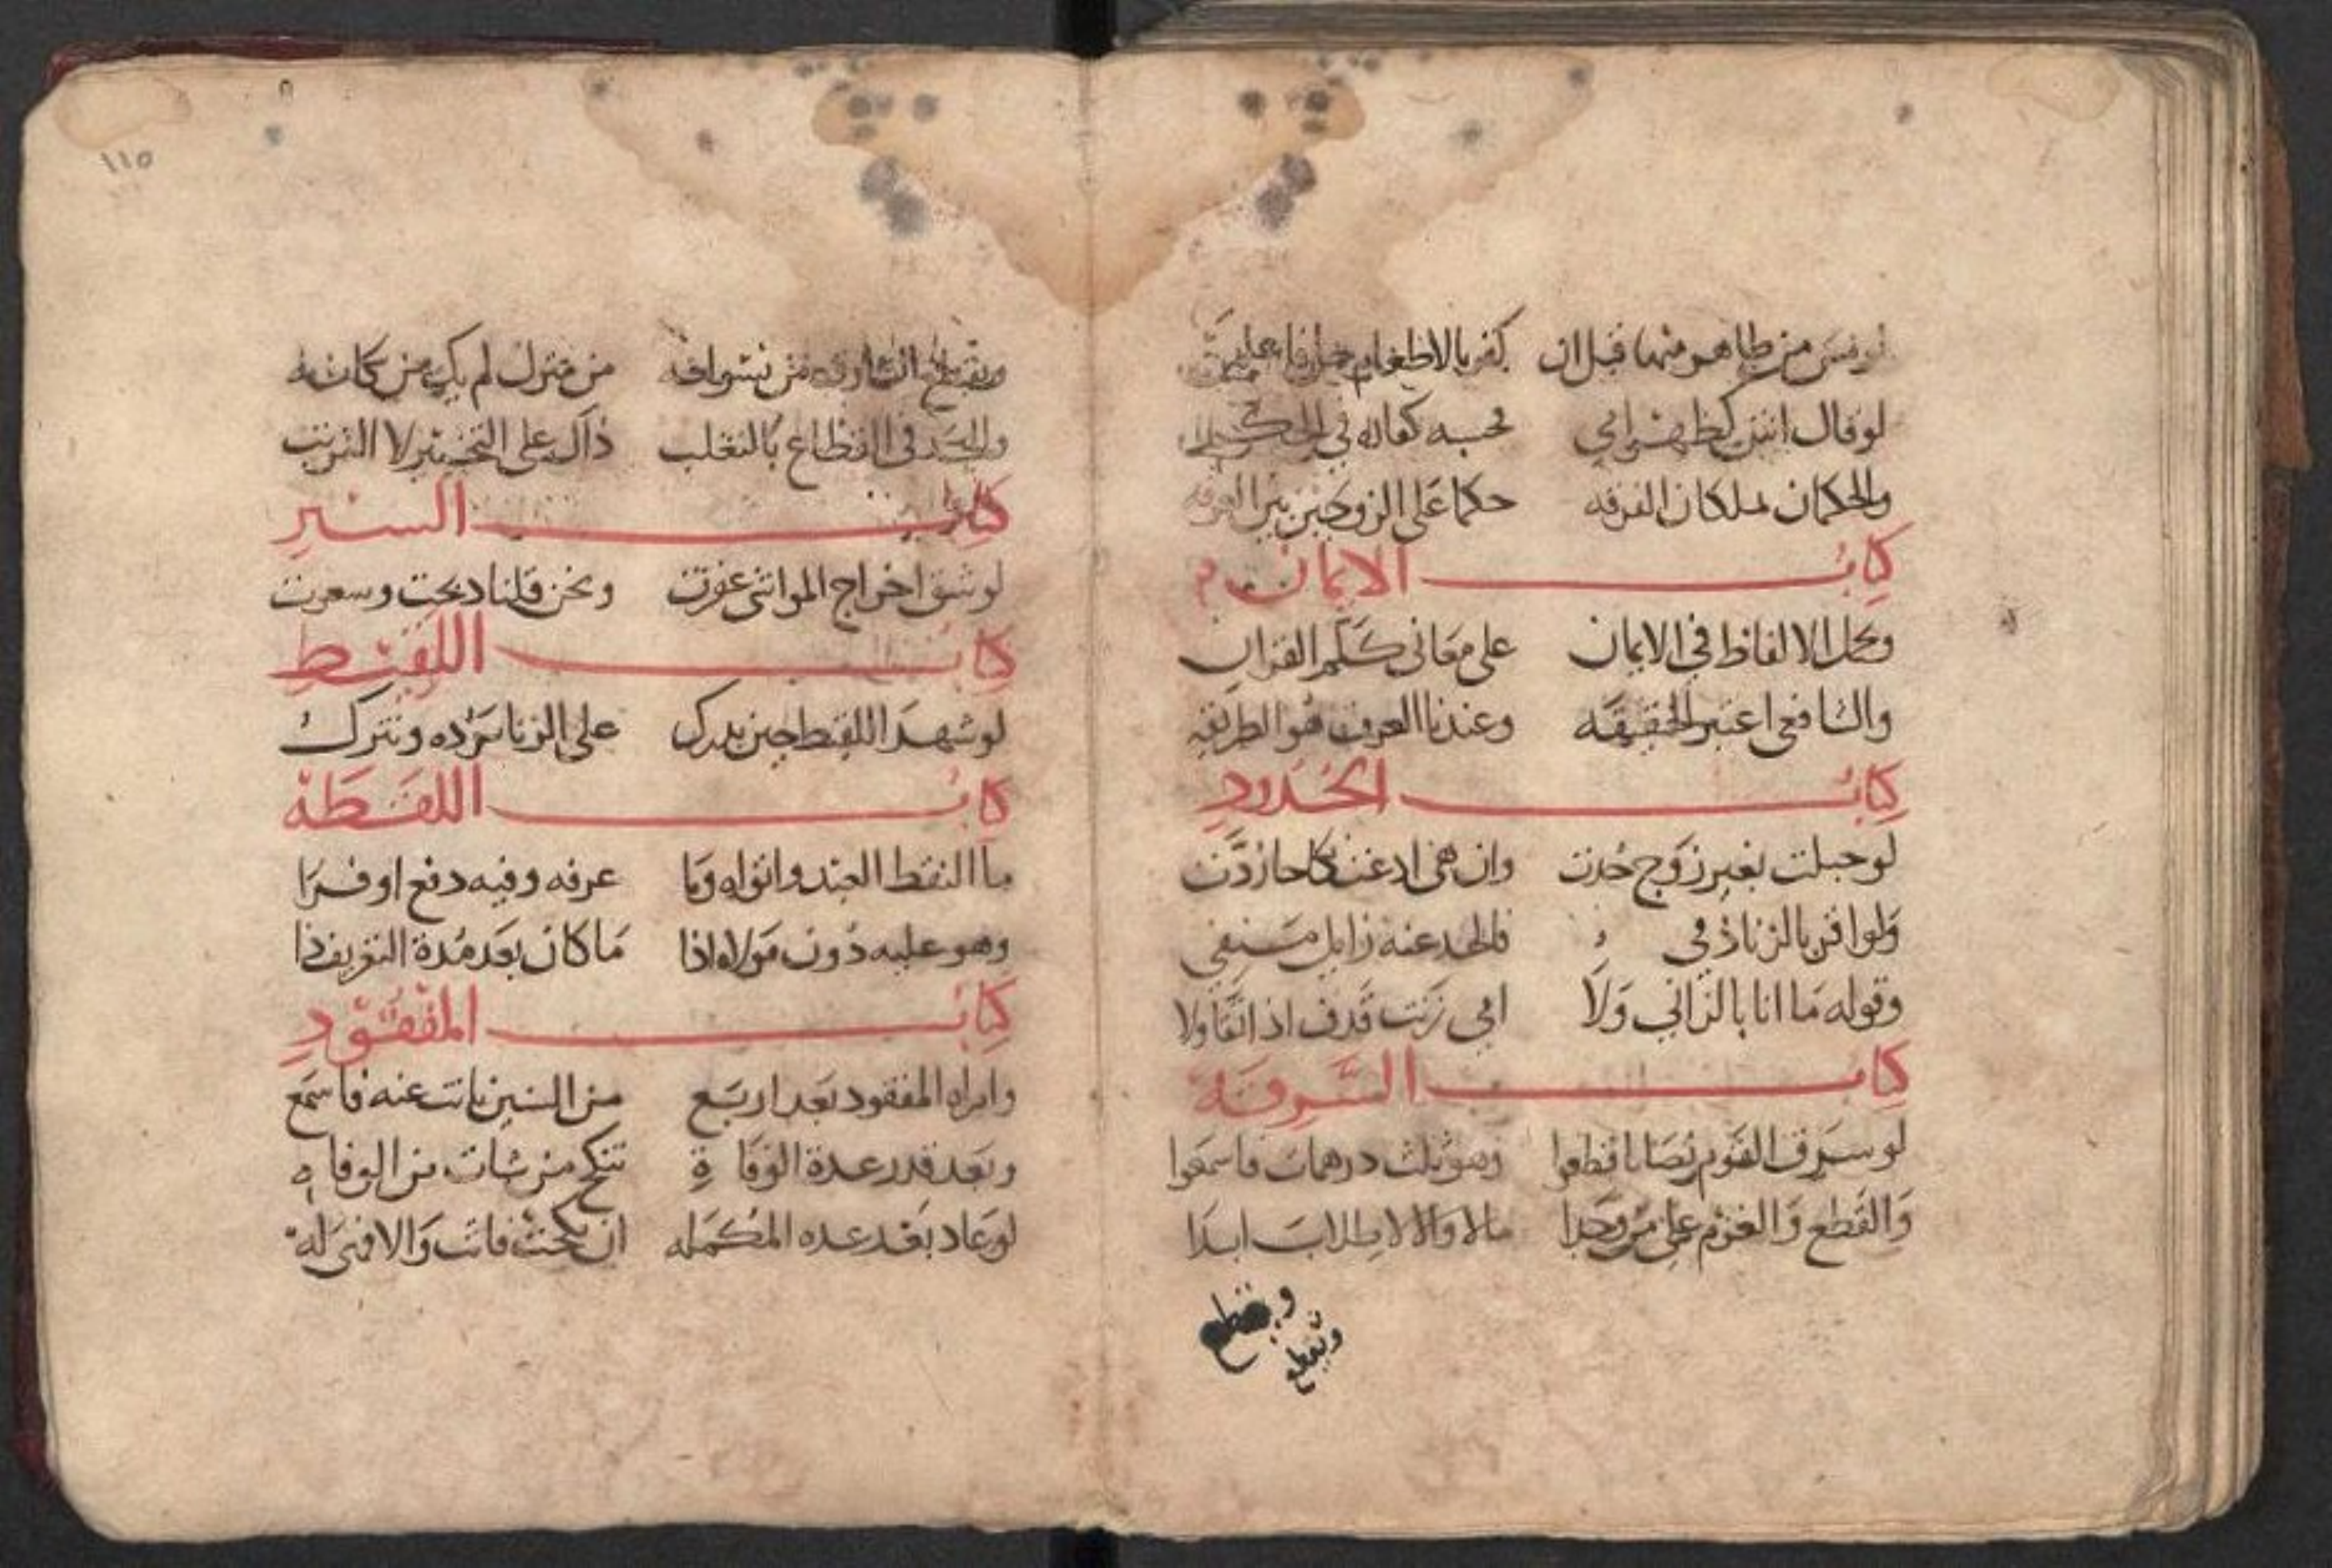 لو مس من ظاهر منها قبل ان كفر بالاطعام
لو قال انتن كظهر امي فحسبه كفارة في الحكم
والحكمان يملكان الفرقه حكما على الزوجين بين الفرقه
كتاب الايمان
وتحمل الالفاظ في الايمان على معاني كلم القران
والشافعي اعتبر الحقيقه وعندنا العرف هو الطريقه
كتاب الحدود
لو حبلت بغير زوج حدت وان هي ادعت نكاحا ردت
ولو اقر بالزنا ذمي فالحد عنه زايل منفي
وقوله ما انا بالزاني ولا امي زنت قذف اذا تقاولا
كتاب السرقة
لو سرق القوم نصابا قطعوا وهو ثلث درهمات فاسمعوا
والقطع والغرم على من وجدا مالا والا لا طلاب ابدا
ويقطع
ويقطع
١١٥
ويقطع السارق من نسوانه من منزل لم يك من
والحد في القطاع بالتغلب ذاك على التخيير لا الترتيب
كتاب السير
لو شق اخراج المواشي عقرت ونحن قلنا ذبحت وسعرت
كتاب اللقيط
لو شهد اللقيط حين يدرك على الزنا نرده ونترك
كتاب اللقطة
ما التقط العبد واتواه وما عرفه وفيه دفع او فدا
وهو عليه دون مولاه اذا ما كان بعد مدة التعريف ذا
كتاب المفقود
وامراه المفقود بعد اربع من السنين بانت عنه فاسمع
وبعد قدر عدة الوفاة تنكح من شات من
لو عاد بعد عده المكمله ان نكحت فاتت والا فهي له